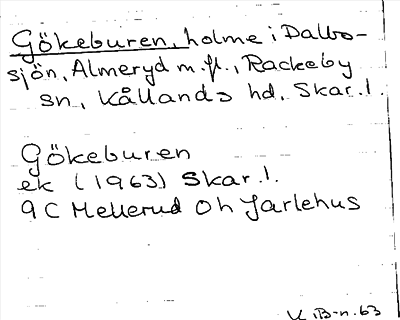 Gökeburen, holme i Dalbo-
sjön, Almeryd m.fl., Rackeby
sn, Kållands hd, Skar.l.
Gökeburen
ek (1963) Skar.l.
9C Mellerud Oh Jarlehus